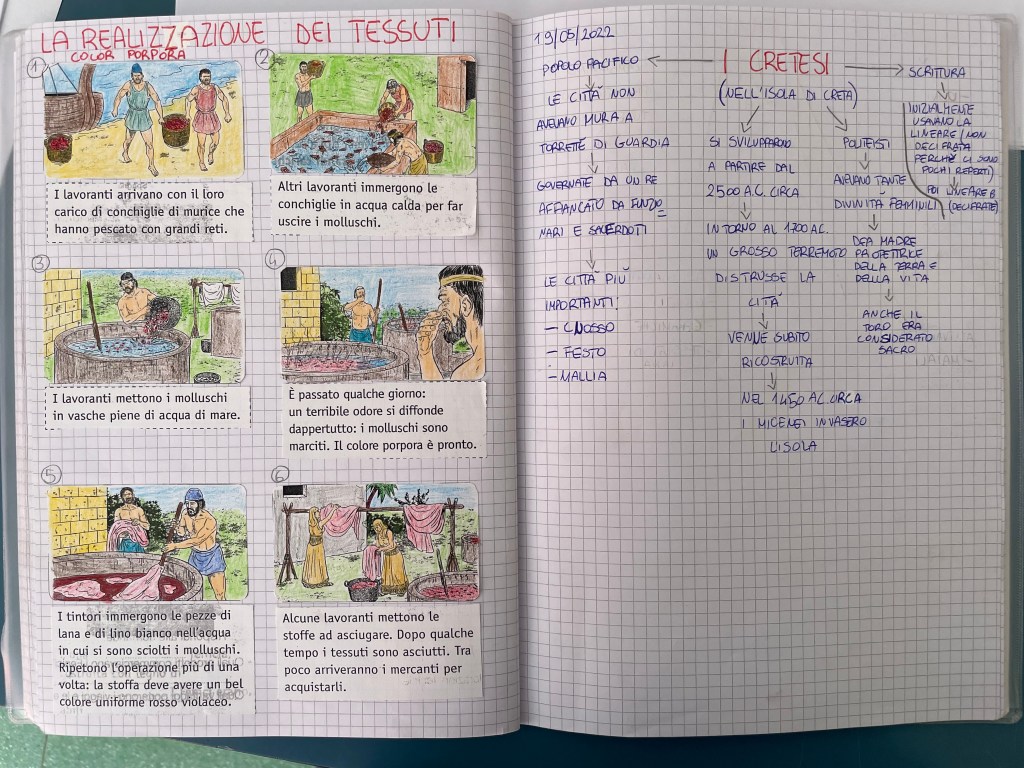 LA REALIZZAZIONE DEI TESSUTI
COLOR PORPORA
1
I lavoranti arrivano con il loro
carico di conchiglie di murice che
hanno pescato con grandi reti.
2
Altri lavoranti immergono le
conchiglie in acqua calda per far
uscire i molluschi.
3
I lavoranti mettono i molluschi
in vasche piene di acqua di mare.
4
È passato qualche giorno:
un terribile odore si diffonde
dappertutto: i molluschi sono
marciti. Il colore porpora è pronto.
5
I tintori immergono le pezze di
lana e di lino bianco nell'acqua
in cui si sono sciolti i molluschi.
Ripetono l'operazione più di una
volta: la stoffa deve avere un bel
colore uniforme rosso violaceo.
6
Alcune lavoranti mettono le
stoffe ad asciugare. Dopo qualche
tempo i tessuti sono asciutti. Tra
poco arriveranno i mercanti per
acquistarli.
19/05/2022
I CRETESI
(NELL'ISOLA DI CRETA)
POPOLO PACIFICO
LE CITTÀ NON
AVEVANO MURA A
TORRETTE DI GUARDIA
GOVERNATE DA UN RE
AFFIANCATO DA FUNZIO
NARI E SACERDOTI
LE CITTÀ PIÙ
IMPORTANTI:
- CNOSSO
- FESTO
- MALLIA
SI SVILUPPARONO
A PARTIRE DAL
2500 A.C. CIRCA
INTORNO AL 1700 A.C.
UN GROSSO TERREMOTO
DISTRUSSE LA
CITÀ
VENNE SUBITO
RICOSTRUITA
NEL 1450 A.C. CIRCA
I MICENEI INVASERO
L'ISOLA
POLITEISTI
AVEVANO TANTE
DIVINITÀ FEMMINILI
DEA MADRE
PROTETTRICE
DELLA TERRA E
DELLA VITA
ANCHE IL
TORO ERA
CONSIDERATO
SACRO
SCRITTURA
INIZIALMENTE
USAVANO LA
LINEARE / NON
DECIFRATA
PERCHÈ CI SONO
POCHI REPERTI)
POI LINEARE B
(DECIFRATE)